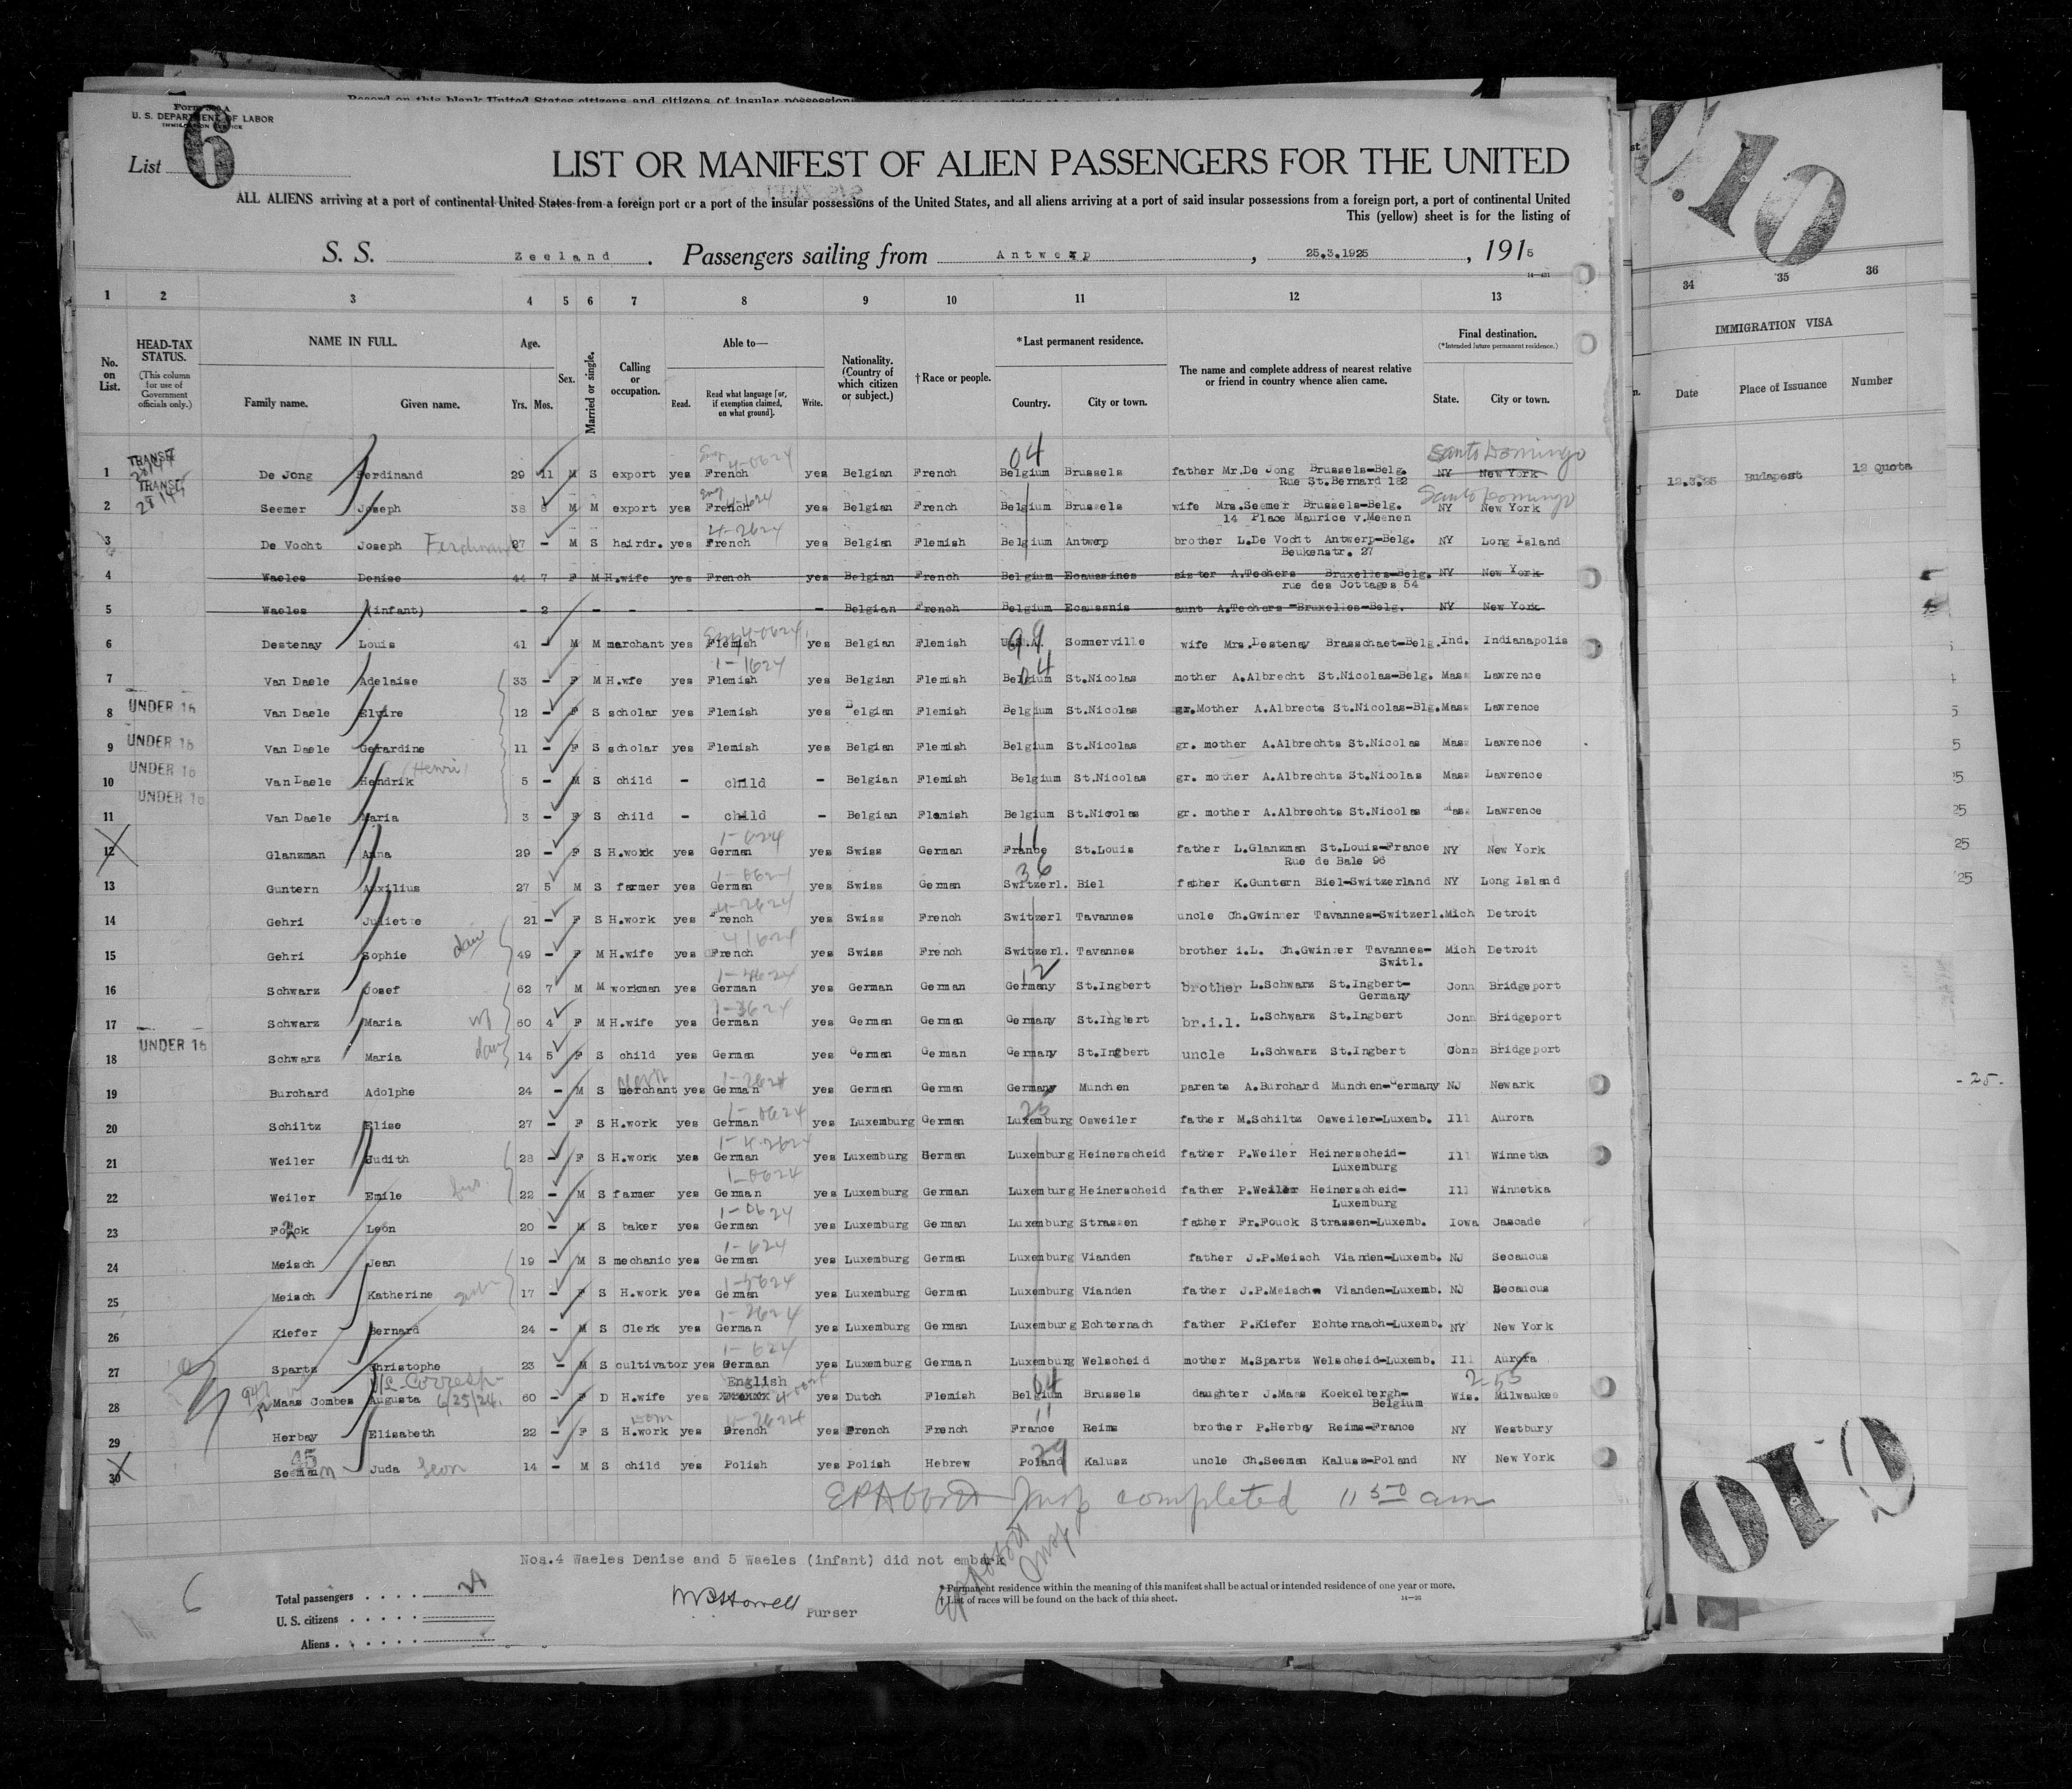 Form 500 A
U. S. DEPARTMENT OF LABOR
IMMIGRATION SERVICE
List 6
LIST OR MANIFEST OF ALIEN PASSENGERS FOR THE UNITED
ALL ALIENS arriving at a port of continental United States from a foreign port or a port of the insular possessions of the United States, and all aliens arriving at a port of said insular possessions from a foreign port, a port of continental United
This (yellow) sheet is for the listing of
S. S. Zeeland. Passengers sailing from Antwerp, 25.3.1925, 1915
1 2 3 4 5 6 7 8 9 10 11 12 13
No. on List. HEAD-TAX STATUS. (This column for use of Government officials only.) NAME IN FULL. Family name. Given name. Age. Yrs. Mos. Sex. Married or single. Calling or occupation. Able to— Read. Read what language [or, if exemption claimed, on what ground]. Write. Nationality. (Country of which citizen or subject.) †Race or people. *Last permanent residence. Country. City or town. The name and complete address of nearest relative or friend in country whence alien came. Final destination. (*Intended future permanent residence.) State. City or town.
Santo Domingo
1 TRANSIT De Jong Ferdinand 29 11 M S export yes French yes Belgian French Belgium Brussels father Mr.De Jong Brussels-Belg. NY New York
Rue St.Bernard 182
Santo Domingo
2 TRANSIT Seemer Joseph 38 8 M M export yes French yes Belgian French Belgium Brussels wife Mrs.Seemer Brussels-Belg. NY New York
14 Place Maurice v.Meenen
3 De Vocht Joseph Ferdinand 27 - M S hairdr. yes French yes Belgian Flemish Belgium Antwerp brother L.De Vocht Antwerp-Belg. NY Long Island
Beukenstr. 27
4 Waeles Denise 44 7 F M H.wife yes French yes Belgian French Belgium Ecaussines sister A.Techers Bruxelles-Belg. NY New York
rue des Cottages 54
5 Waeles (infant) - 2 - - - - Belgian French Belgium Ecaussnis aunt A.Techers -Bruxelles-Belg. NY New York
6 Destenay Louis 41 - M M merchant yes Flemish yes Belgian Flemish U.S.A. Sommerville wife Mrs.Destenay Brasschaet-Belg. Ind. Indianapolis
7 Van Daele Adelaise 33 - F M H.wfe yes Flemish yes Belgian Flemish Belgium St.Nicolas mother A.Albrecht St.Nicolas-Belg. Mass Lawrence
8 UNDER 16 Van Daele Elvire 12 - F S scholar yes Flemish yes Belgian Flemish Belgium St.Nicolas gr.Mother A.Albrects St.Nicolas-Blg. Mass Lawrence
9 UNDER 16 Van Daele Gerardine 11 - F S scholar yes Flemish yes Belgian Flemish Belgium St.Nicolas gr. mother A.Albrechts St.Nicolas Mass Lawrence
10 UNDER 16 Van Daele Hendrik (Henri) 5 - M S child - child - Belgian Flemish Belgium St.Nicolas gr. mother A.Albrechts St.Nicolas Mass Lawrence
11 UNDER 16 Van Daele Maria 3 - F S child - child - Belgian Flemish Belgium St.Nicolas gr. mother A.Albrechts St.Nicolas Mass Lawrence
12 Glanzman Anna 29 - F S H.work yes German yes Swiss German France St.Louis father L.Glanzman St.Louis-France NY New York
Rue de Bale 96
13 Guntern Auxilius 27 5 M S farmer yes German yes Swiss German Switzerl. Biel father K.Guntern Biel-Switzerland NY Long Island
14 Gehri Juliette 21 - F S H.work yes French yes Swiss French Switzerl Tavannes uncle Ch.Gwinner Tavannes-Switzerl. Mich Detroit
15 Gehri Sophie 49 - F M H.wife yes French yes Swiss French Switzerl. Tavannes brother i.L. Ch.Gwinner Tavannes- Mich Detroit
Switl.
16 Schwarz Josef 62 7 M M workman yes German yes German German Germany St.Ingbert brother L.Schwarz St.Ingbert- Conn Bridgeport
Germany
17 Schwarz Maria 60 4 F M H.wife yes German yes German German Germany St.Ingbert br.i.l. L.Schwarz St.Ingbert Conn Bridgeport
18 UNDER 16 Schwarz Maria dau 14 5 F S child yes German yes German German Germany St.Ingbert uncle L.Schwarz St.Ingbert Conn Bridgeport
19 Burchard Adolphe 24 - M S merchant yes German yes German German Germany Munchen parents A.Burchard Munchen-Germany NJ Newark
20 Schiltz Elise 27 - F S H.work yes German yes Luxemburg German Luxemburg Osweiler father M.Schiltz Osweiler-Luxemb. Ill Aurora
21 Weiler Judith 28 - F S H.work yes German yes Luxemburg German Luxemburg Heinerscheid father P.Weiler Heinerscheid- Ill Winnetka
Luxemburg
22 Weiler Emile 22 - M S farmer yes German yes Luxemburg German Luxemburg Heinerscheid father P.Weiler Heinerscheid- Ill Winnetka
Luxemburg
23 Leon 20 - M S baker yes German yes Luxemburg German Luxemburg Strassen father Fr.Fouck Strassen-Luxemb. Iowa Cascade
24 Meisch Jean 19 - M S mechanic yes German yes Luxemburg German Luxemburg Vianden father J.P.Meisch Vianden-Luxemb. NJ Secaucus
25 Meisch Katherine 17 - F S H.work yes German yes Luxemburg German Luxemburg Vianden father J.P.Meisch Vianden-Luxemb. NJ Secaucus
26 Kiefer Bernard 24 - M S Clerk yes German yes Luxemburg German Luxemburg Echternach father P.Kiefer Echternach-Luxemb. NY New York
27 Spartz Christophe 23 - M S cultivator yes German yes Luxemburg German Luxemburg Welscheid mother M.Spartz Welscheid-Luxemb. Ill Aurora
English
28 Maas Combes Augusta 6/25/24. 60 - F D H.wife yes yes Dutch Flemish Belgium Brussels daughter J.Maas Koekelbergh- Wis. Milwaukee
Belgium
29 Herbay Elisabeth 22 - F S H.work yes French yes French French France Reims brother P.Herbay Reims-France NY Westbury
30 Seeman Juda Leon 14 - M S child yes Polish yes Polish Hebrew Poland Kalusz uncle Ch.Seeman Kalusz-Poland NY New York
Insp completed 11 50 am
Nos.4 Waeles Denise and 5 Waeles (infant) did not embark
Total passengers
U. S. citizens
Aliens
Purser
*Permanent residence within the meaning of this manifest shall be actual or intended residence of one year or more.
†List of races will be found on the back of this sheet.
34 35 36
IMMIGRATION VISA
Date Place of Issuance Number
12.3.25 Budapest 12 Quota